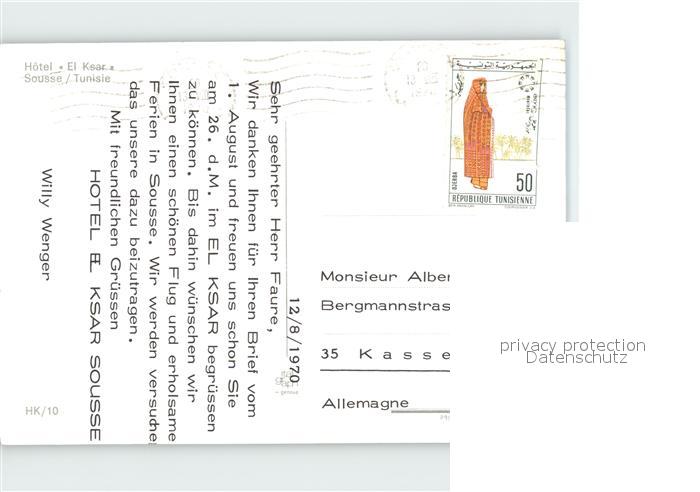 Hôtel * El Ksar *
Sousse / Tunisie
12/8/1970
Sehr geehrter Herr Faure,
Wir danken Ihnen für Ihren Brief vom
1. August und freuen uns schon Sie
am 26. d.M. im EL KSAR begrüssen
zu können. Bis dahin wünschen wir
Ihnen einen schönen Flug und erholsame
Ferien in Sousse. Wir werden versuche
das unsere dazu beizutragen.
Mit freundlichen Grüssen
HOTEL EL KSAR SOUSSE
Willy Wenger
HK/10
الجمهورية التونسية
DJERBA
50
RÉPUBLIQUE TUNISIENNE
Monsieur Alber
Bergmannstras
35 Kasse
Allemagne
privacy protection
Datenschutz